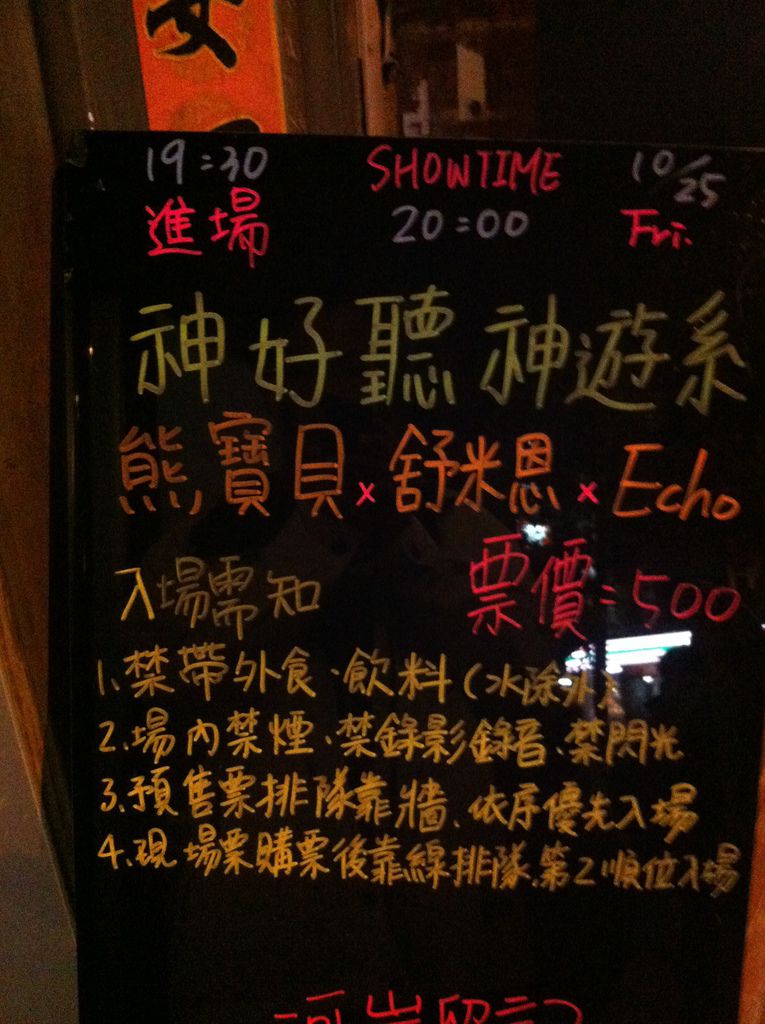 19:30 SHOWTIME 10/25
進場 20:00 Fri.
神好聽 神遊系
熊寶貝 x 舒米恩 x Echo
入場需知 票價:500
1.禁帶外食、飲料(水除外)
2.場內禁煙、禁錄影錄音、禁閃光
3.預售票排隊靠牆、依序優先入場
4.現場票購票後靠線排隊、第2順位入場
河岸留言